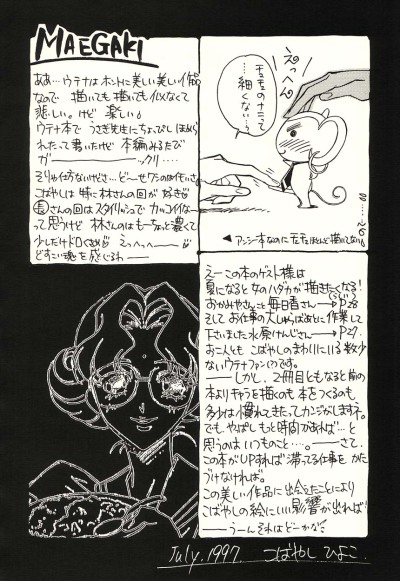 MAEGAKI
ああ…ウテナはホントに美しい美しい作品
なので 描いても描いても似なくて
悲しい。けど 楽しい♪
ウテナ本で うさぎ先生にちょっぴしほめら
れたって書いたけど 本編みるたびで
ガ――――――ックリ・・・・
こばやしは 特に林さんの回が好き♡
長さんの回はスタイリッシュで カッコイイなー
って思うけど 林さんのはもーちょっと濃くて
少しだけドロくさめ♡ えっへっへ――♡
どすこい魂を感じるわ――
えっへん
チュチュのナニって
…細くない…?
◀アンシー本なのにチュチュほとんど描いてない♪
えーこの本のゲスト様は
夏になると 女のハダカが描きたくなる!
おかみやさんこと毎日香さん―→P.28
そして お仕事の大しゅらばあとに作業して
下さいました 水原けんじさん―→P27.
お二人とも こばやしのまわりにいる数少
ないウテナファン(?)です。
――しかし、2冊目ともなると前の
本よりキャラを描くのも 本をつくるのも
多少は慣れてきたってカンジがします。
でも、やっぱし もっと時間があれば…と
思うのは いつものこと・・・・。――さて、
この本がUPすれば 滞ってる仕事を かた
づけなければ。
この美しい作品に 出会えたことにより
こばやしの絵にいい影響が出れば!
――うーん それはどーかな?
July. 1997. こばやし ひよこ.